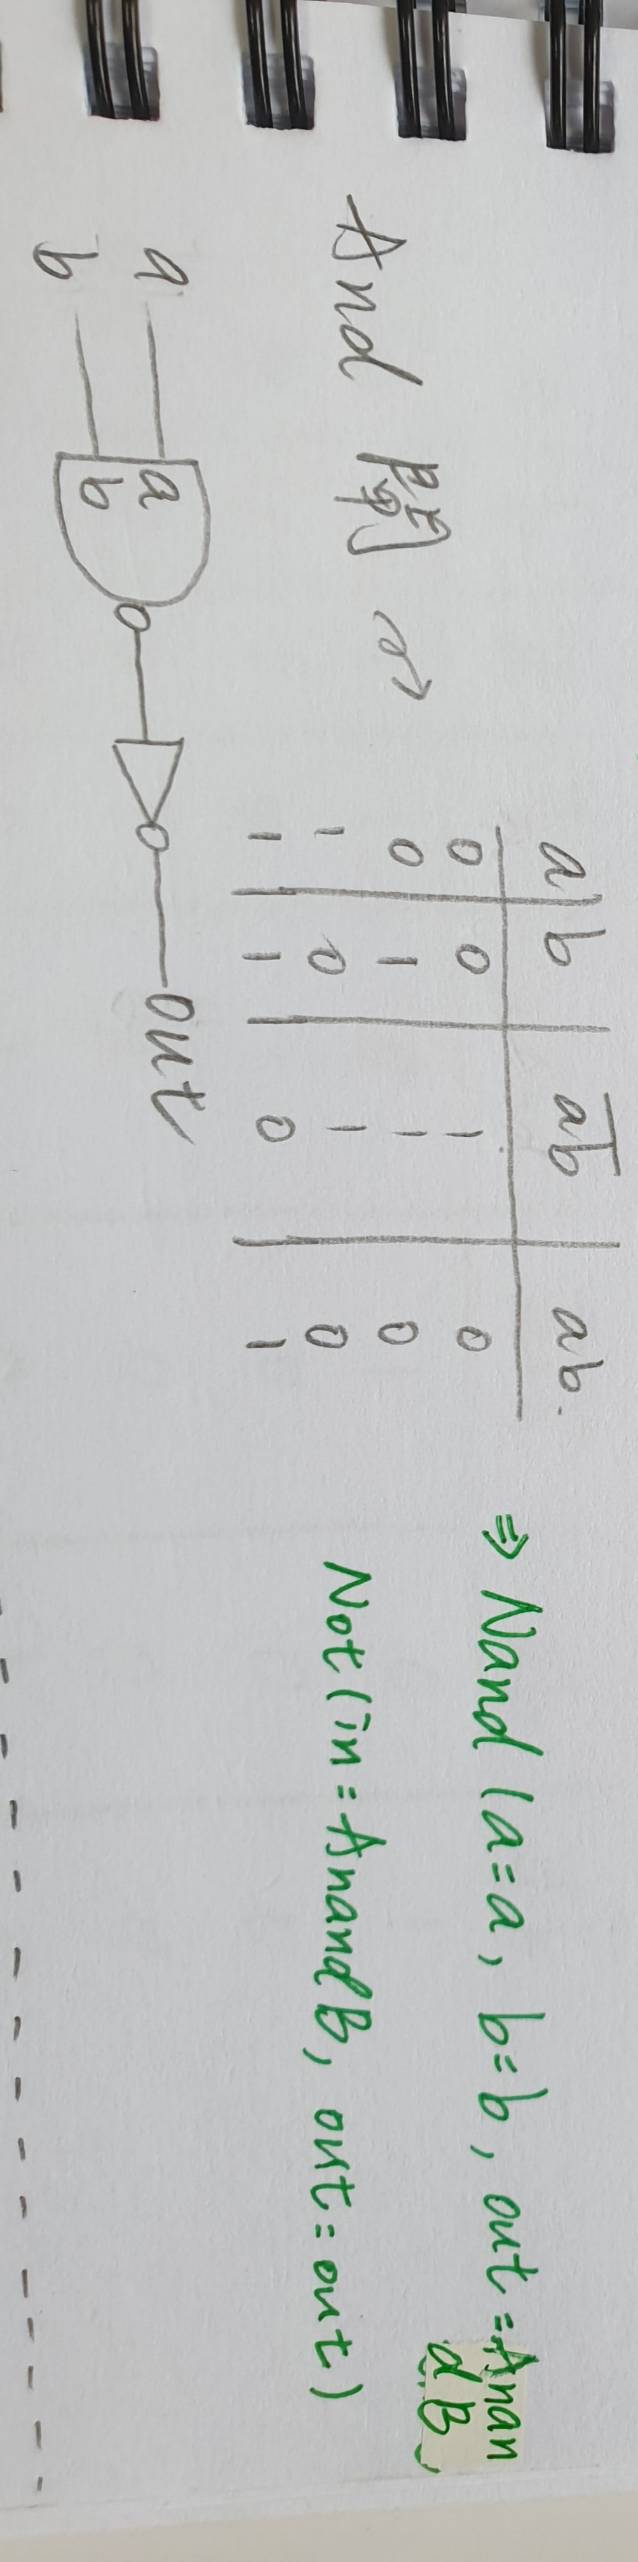 a b \overline{ab} ab.
0 0 1 0
0 1 1 0
1 0 1 0
1 1 0 1
And 閘 →
⇒ Nand (a=a, b=b, out=Anan
dB,
Not(in=AnandB, out=out)
a a out
b b